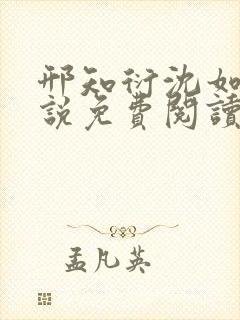 邢知衍沈如
說免費閱讀
孟凡英